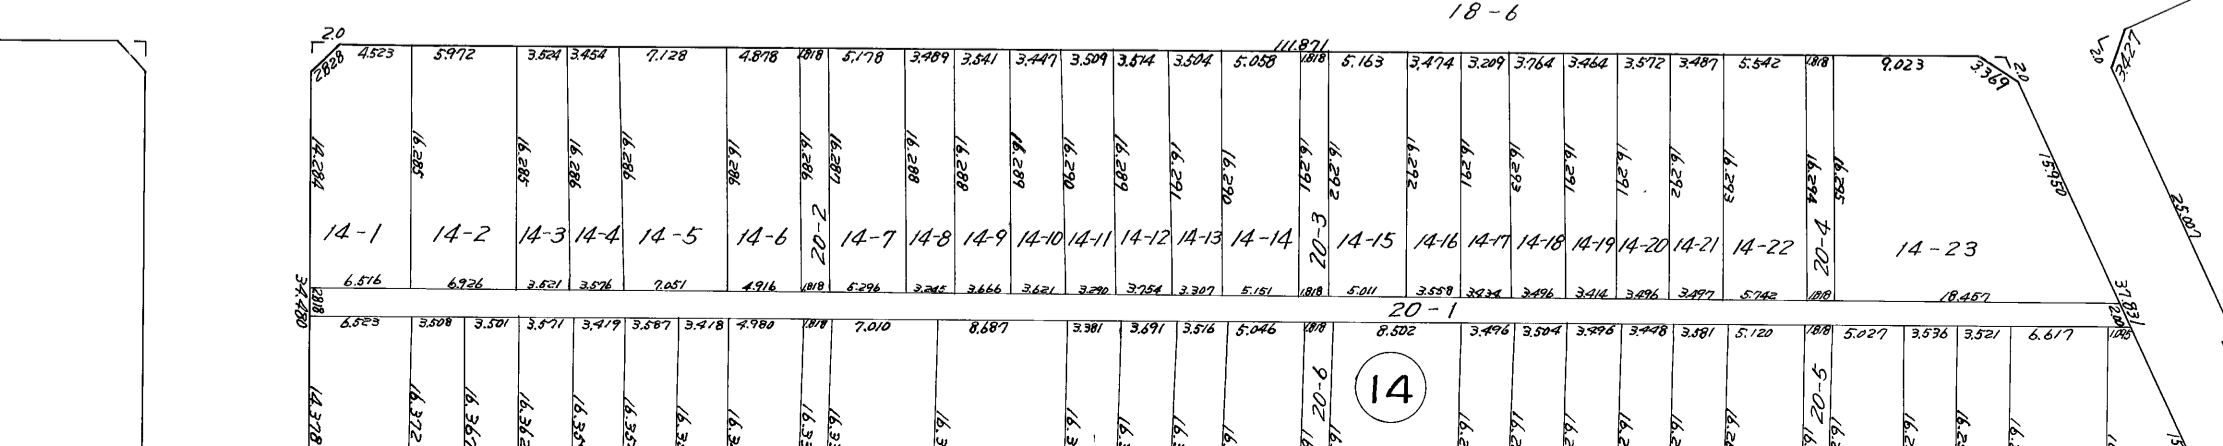 18-6
2.0
111.871
2.828 4.523 5.972 3.524 3.454 7.128 4.878 1.818 5.178 3.489 3.541 3.447 3.509 3.514 3.504 5.058 1.818 5.163 3.474 3.209 3.764 3.464 3.572 3.487 5.542 1.818 9.023 3.369 2.0
2.0 3.427
14.284 16.285 16.285 16.286 16.286 16.286 16.286 16.287 16.288 16.288 16.289 16.290 16.289 16.291 16.290 16.291 16.292 16.292 16.291 16.293 16.291 16.291 16.292 16.293 16.294 16.295 15.950
25.007
14-1 14-2 14-3 14-4 14-5 14-6 20-2 14-7 14-8 14-9 14-10 14-11 14-12 14-13 14-14 20-3 14-15 14-16 14-17 14-18 14-19 14-20 14-21 14-22 20-4 14-23
6.516 6.926 3.521 3.576 7.051 4.916 1.818 5.296 3.245 3.666 3.621 3.290 3.754 3.307 5.151 1.818 5.011 3.558 3.434 3.496 3.414 3.496 3.497 5.742 1.818 18.457
34.480 2.818
20-1
37.831
6.523 3.508 3.501 3.571 3.419 3.587 3.418 4.980 1.818 7.010 8.687 3.381 3.691 3.516 5.046 1.818 8.502 3.496 3.504 3.496 3.448 3.581 5.120 1.818 5.027 3.536 3.521 6.617
20-6 14 20-5
14.378 16.372